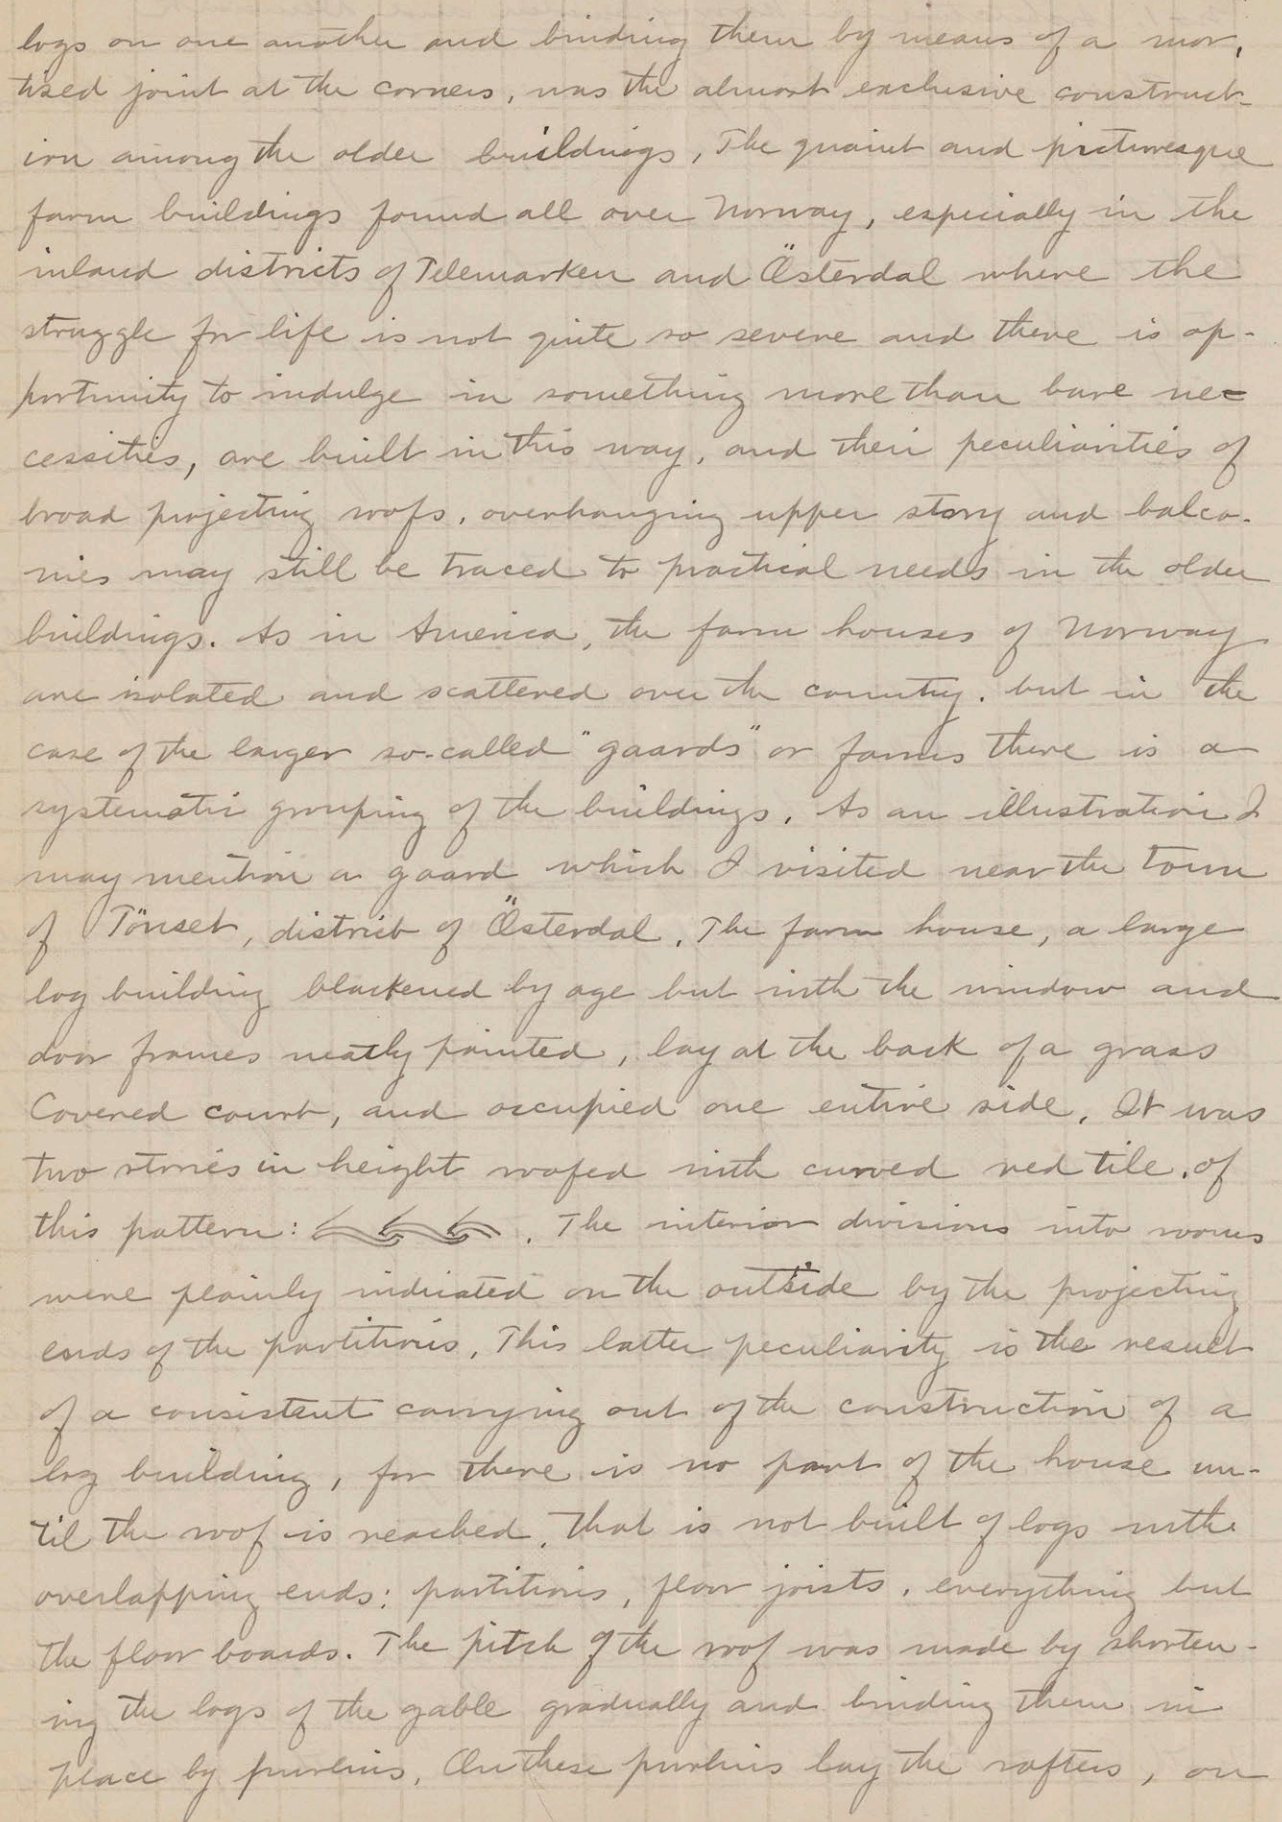 logs on one another and binding them by means of a mor,
tised joint at the corners, was the almost exclusive construct-
ion among the older buildings, The quaint and picturesque
farm buildings found all over Norway, especially in the
inland districts of Telemarken and Österdal where the
struggle for life is not quite so severe and there is op-
portunity to indulge in something more than bare ne=
cessities, are built in this way, and their peculiarities of
broad projecting roofs, overhanging upper story and balco-
nies may still be traced to practical needs in the older
buildings. As in America, the farm houses of Norway
are isolated and scattered over the country, but in the
case of the larger so-called "gaards" or farms there is a
systematic grouping of the buildings. As an illustration I
may mention a gaard which I visited near the town
of Tönset, district of Österdal. The farm house, a large
log building blackened by age but with the window and
door frames neatly painted, lay at the back of a grass
Covered court, and occupied one entire side. It was
two stories in height roofed with curved red tile, of
this pattern: . The interior divisions into rooms
were plainly indicated on the outside by the projecting
ends of the partitions. This latter peculiarity is the result
of a consistent carrying out of the construction of a
log building, for there is no part of the house un-
til the roof is reached, that is not built of logs with
overlapping ends: partitions, floor joists, everything but
the floor boards. The pitch of the roof was made by shorten-
ing the logs of the gable gradually and binding them in
place by purlins. On these purlins lay the rafters, on